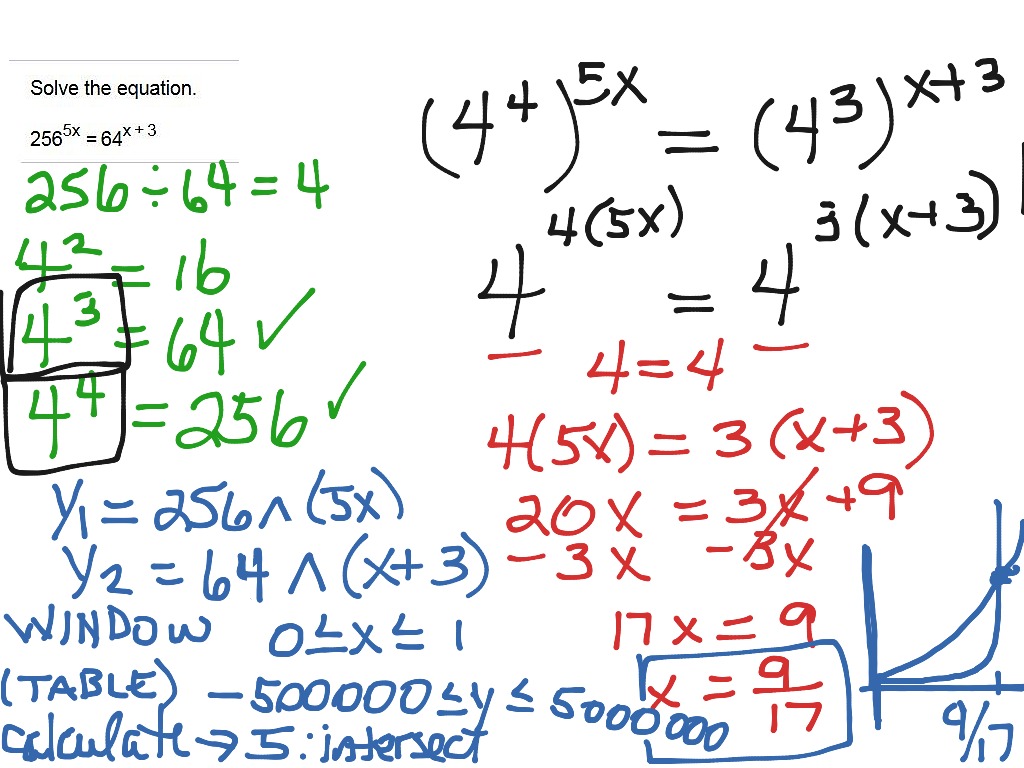 Solve the equation.
256^5x = 64^x + 3
256 ÷ 64 = 4
4^2 = 16
4^3 = 64 ✓
4^4 = 256 ✓
(4^4)^5x = (4^3)^x+3
4^4(5x) = 4^3(x+3)
4 = 4
4(5x) = 3(x+3)
20x = 3x + 9
-3x -3x
17x = 9
x = 9/17
y1 = 256 ^ (5x)
y2 = 64 ^ (x+3)
WINDOW 0 ≤ x ≤ 1
(TABLE) -500000 ≤ y ≤ 5000000
calculate → 5: intersect
9/17